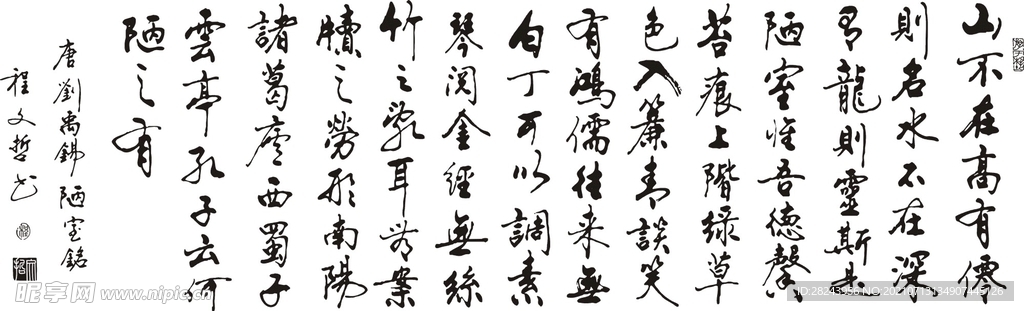 山不在高有僊
則名水不在深
有龍則靈斯是
陋室惟吾德馨
苔痕上階綠草
色入簾青談笑
有鴻儒往来無
白丁可以調素
琴閲金經無絲
竹之亂耳無案
牘之勞形南陽
諸葛廬西蜀子
雲亭孔子云何
陋之有
唐劉禹錫陋室銘
程文哲书
昵享网 www.nipic.cn
ID:28243956 NO:20210713134907445126